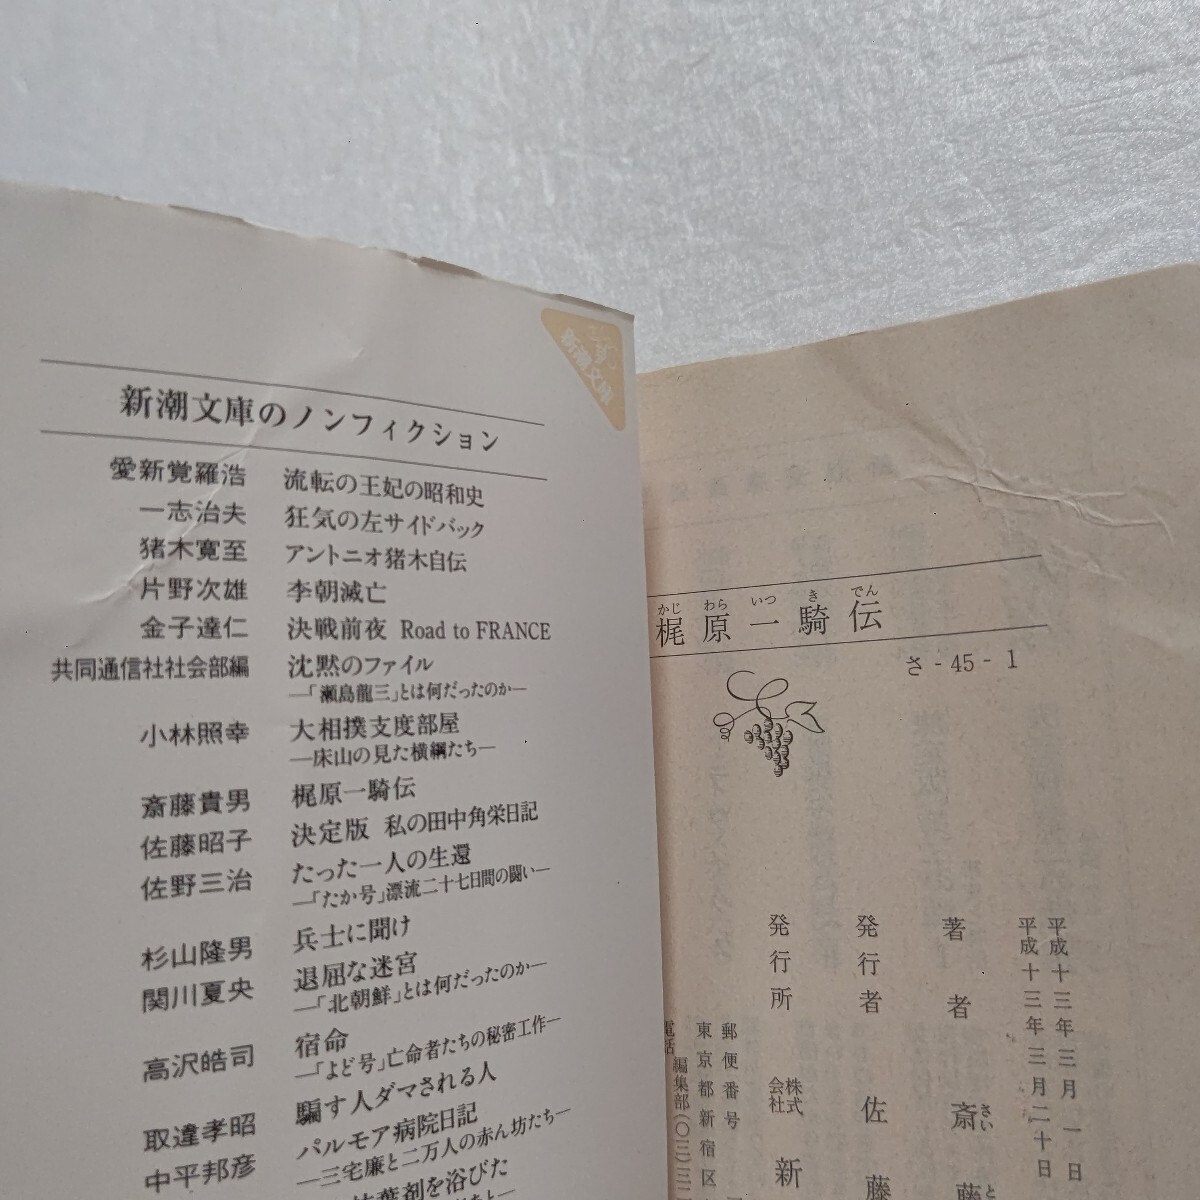 新潮文庫
新潮文庫のノンフィクション
愛新覚羅浩 流転の王妃の昭和史
一志治夫 狂気の左サイドバック
猪木寛至 アントニオ猪木自伝
片野次雄 李朝滅亡
金子達仁 決戦前夜 Road to FRANCE
共同通信社社会部編 沈黙のファイル
―「瀬島龍三」とは何だったのか―
小林照幸 大相撲支度部屋
―床山の見た横綱たち―
斎藤貴男 梶原一騎伝
佐藤昭子 決定版 私の田中角栄日記
佐野三治 たった一人の生還
―「たか号」漂流二十七日間の闘い―
杉山隆男 兵士に聞け
関川夏央 退屈な迷宮
―「北朝鮮」とは何だったのか―
高沢皓司 宿命
―「よど号」亡命者たちの秘密工作―
取違孝昭 騙す人ダマされる人
中平邦彦 パルモア病院日記
―三宅廉と二万人の赤ん坊たち―
葉剤を浴びた
かじ わら いつ き でん
梶原一騎伝
さ-45-1
平成十三年三月一日
平成十三年三月二十日
著者 斎藤
さい と
発行者 佐藤
発行所 株式会社 新
郵便番号
東京都新宿区
電話 編集部(〇三)三二